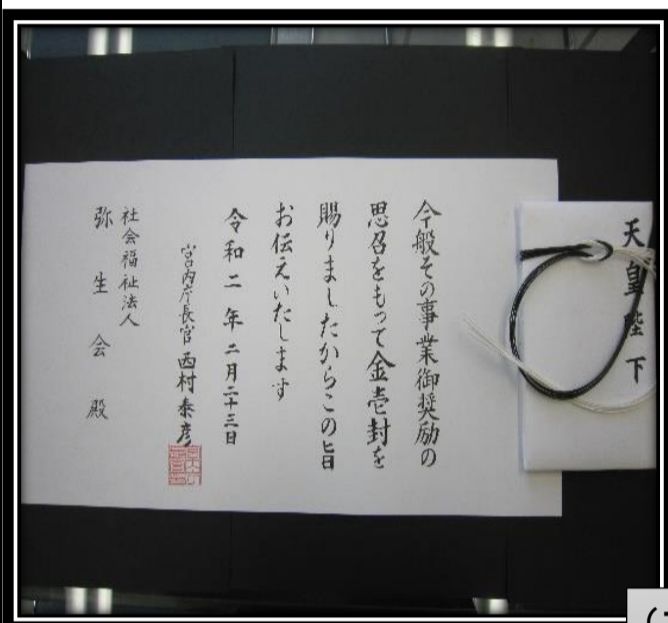 天皇陛下
今般その事業御奨励の
思召をもって金壱封を
賜りましたからこの旨
お伝えいたします
令和二年二月二十三日
宮内庁長官 西村泰彦
社会福祉法人
弥生会殿